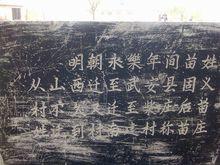 明朝永樂年间苗姓
从山西迁至武安县固义
村 迁至 庄后苗
到村 村称苗